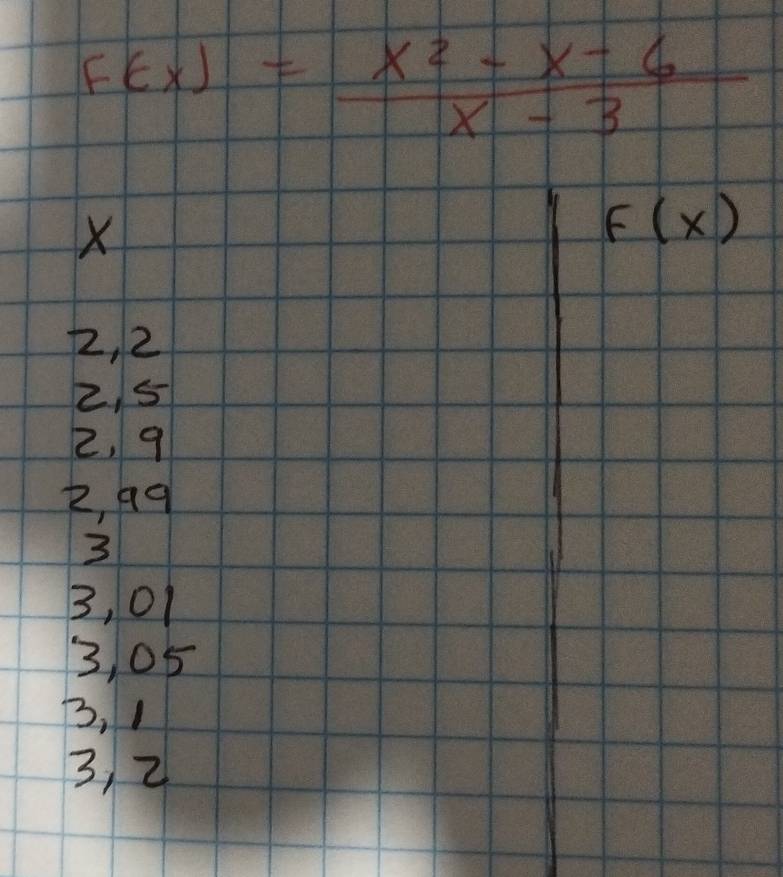 F(x) = x² - x - 6
x - 3
x F(x)
2,2
2,5
2,9
2,99
3
3,01
3,05
3,1
3,2